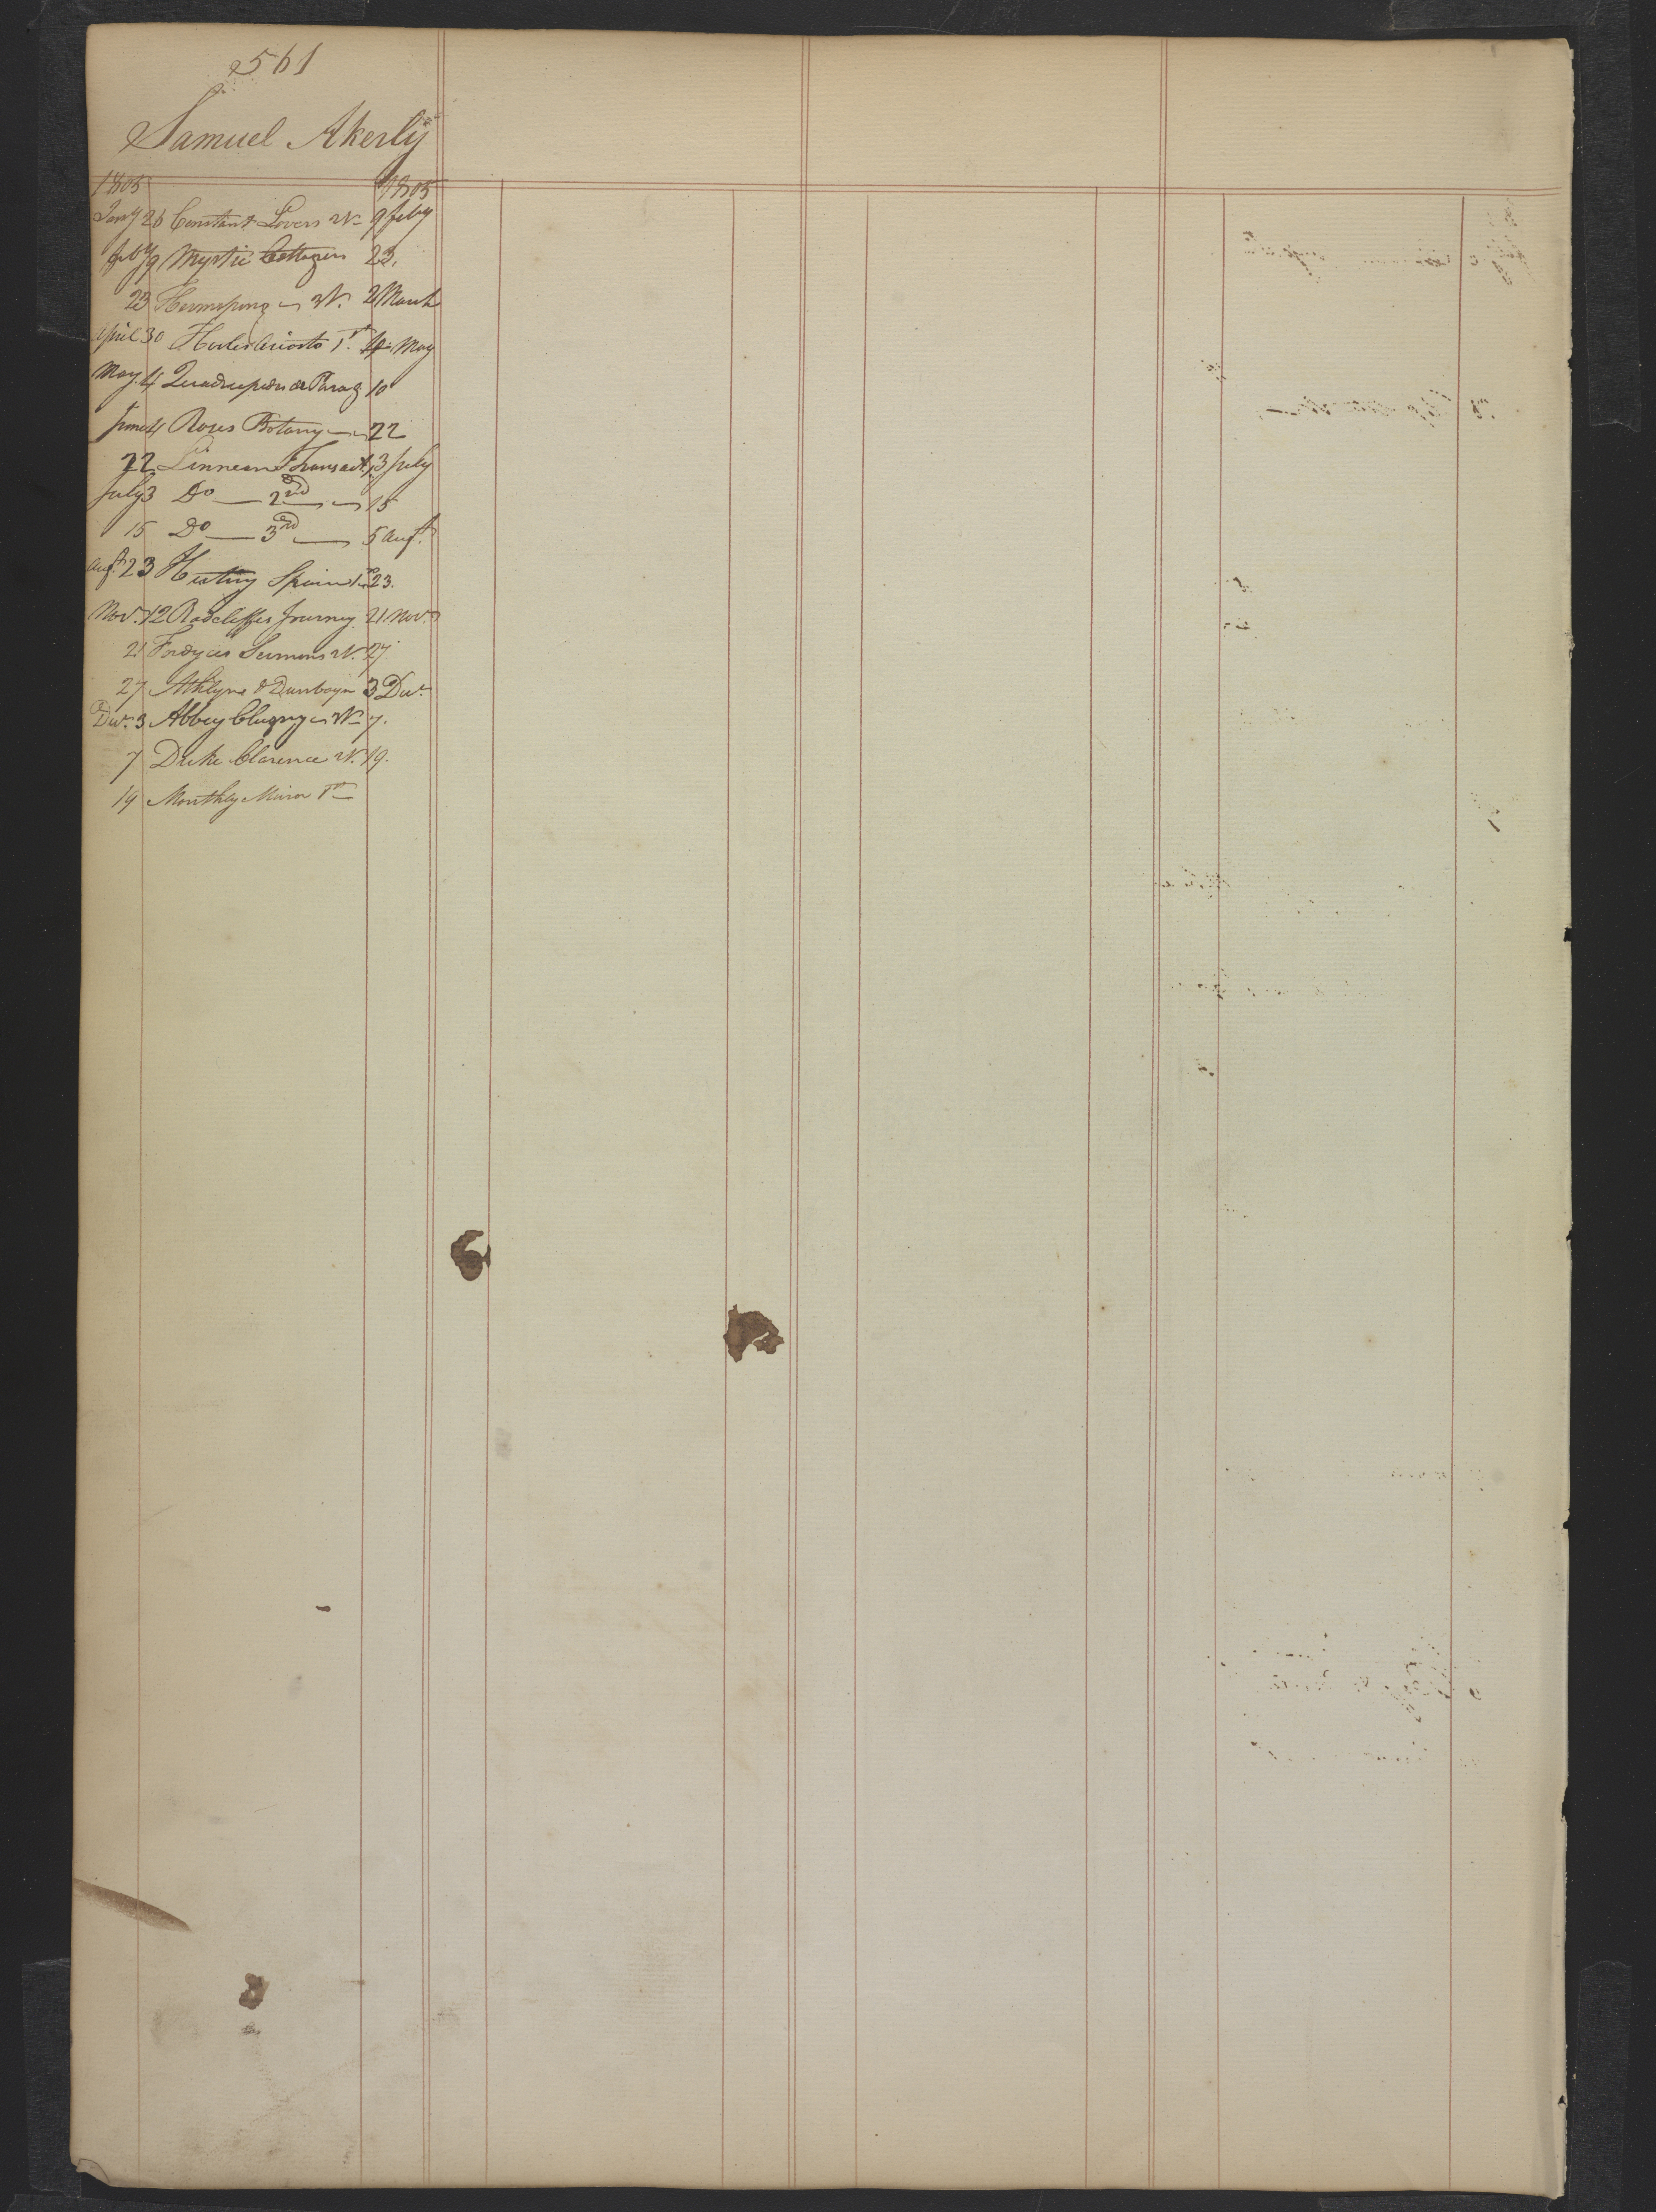 561
Samuel Akerly
1805 1805
Jany 26 Constant Lovers W 9 feby
feby 9 Mystic Cottagers 23.
23 Hermsprong W. 2 March
April 30 Hooles Ariosto 1st. 4 May
May. 4 Quadrupeds of Parag 10
June 4 Roses Botany 22
22 Linnean Transact. 1 3 July
July 3 Do — 2nd — 15
15 Do — 3rd — 5 Augt.
Augt. 23 Spain 1st 23.
Nov. 12 Radcliffes Journey. 21 Nov.
21 Fordyces Sermons W. 27
27 Athlyne & Dunboyn 3 Decr
Decr. 3 Abbey Clugny W 7.
7 Duke Clarence W. 19.
19 Monthly Miror 1st